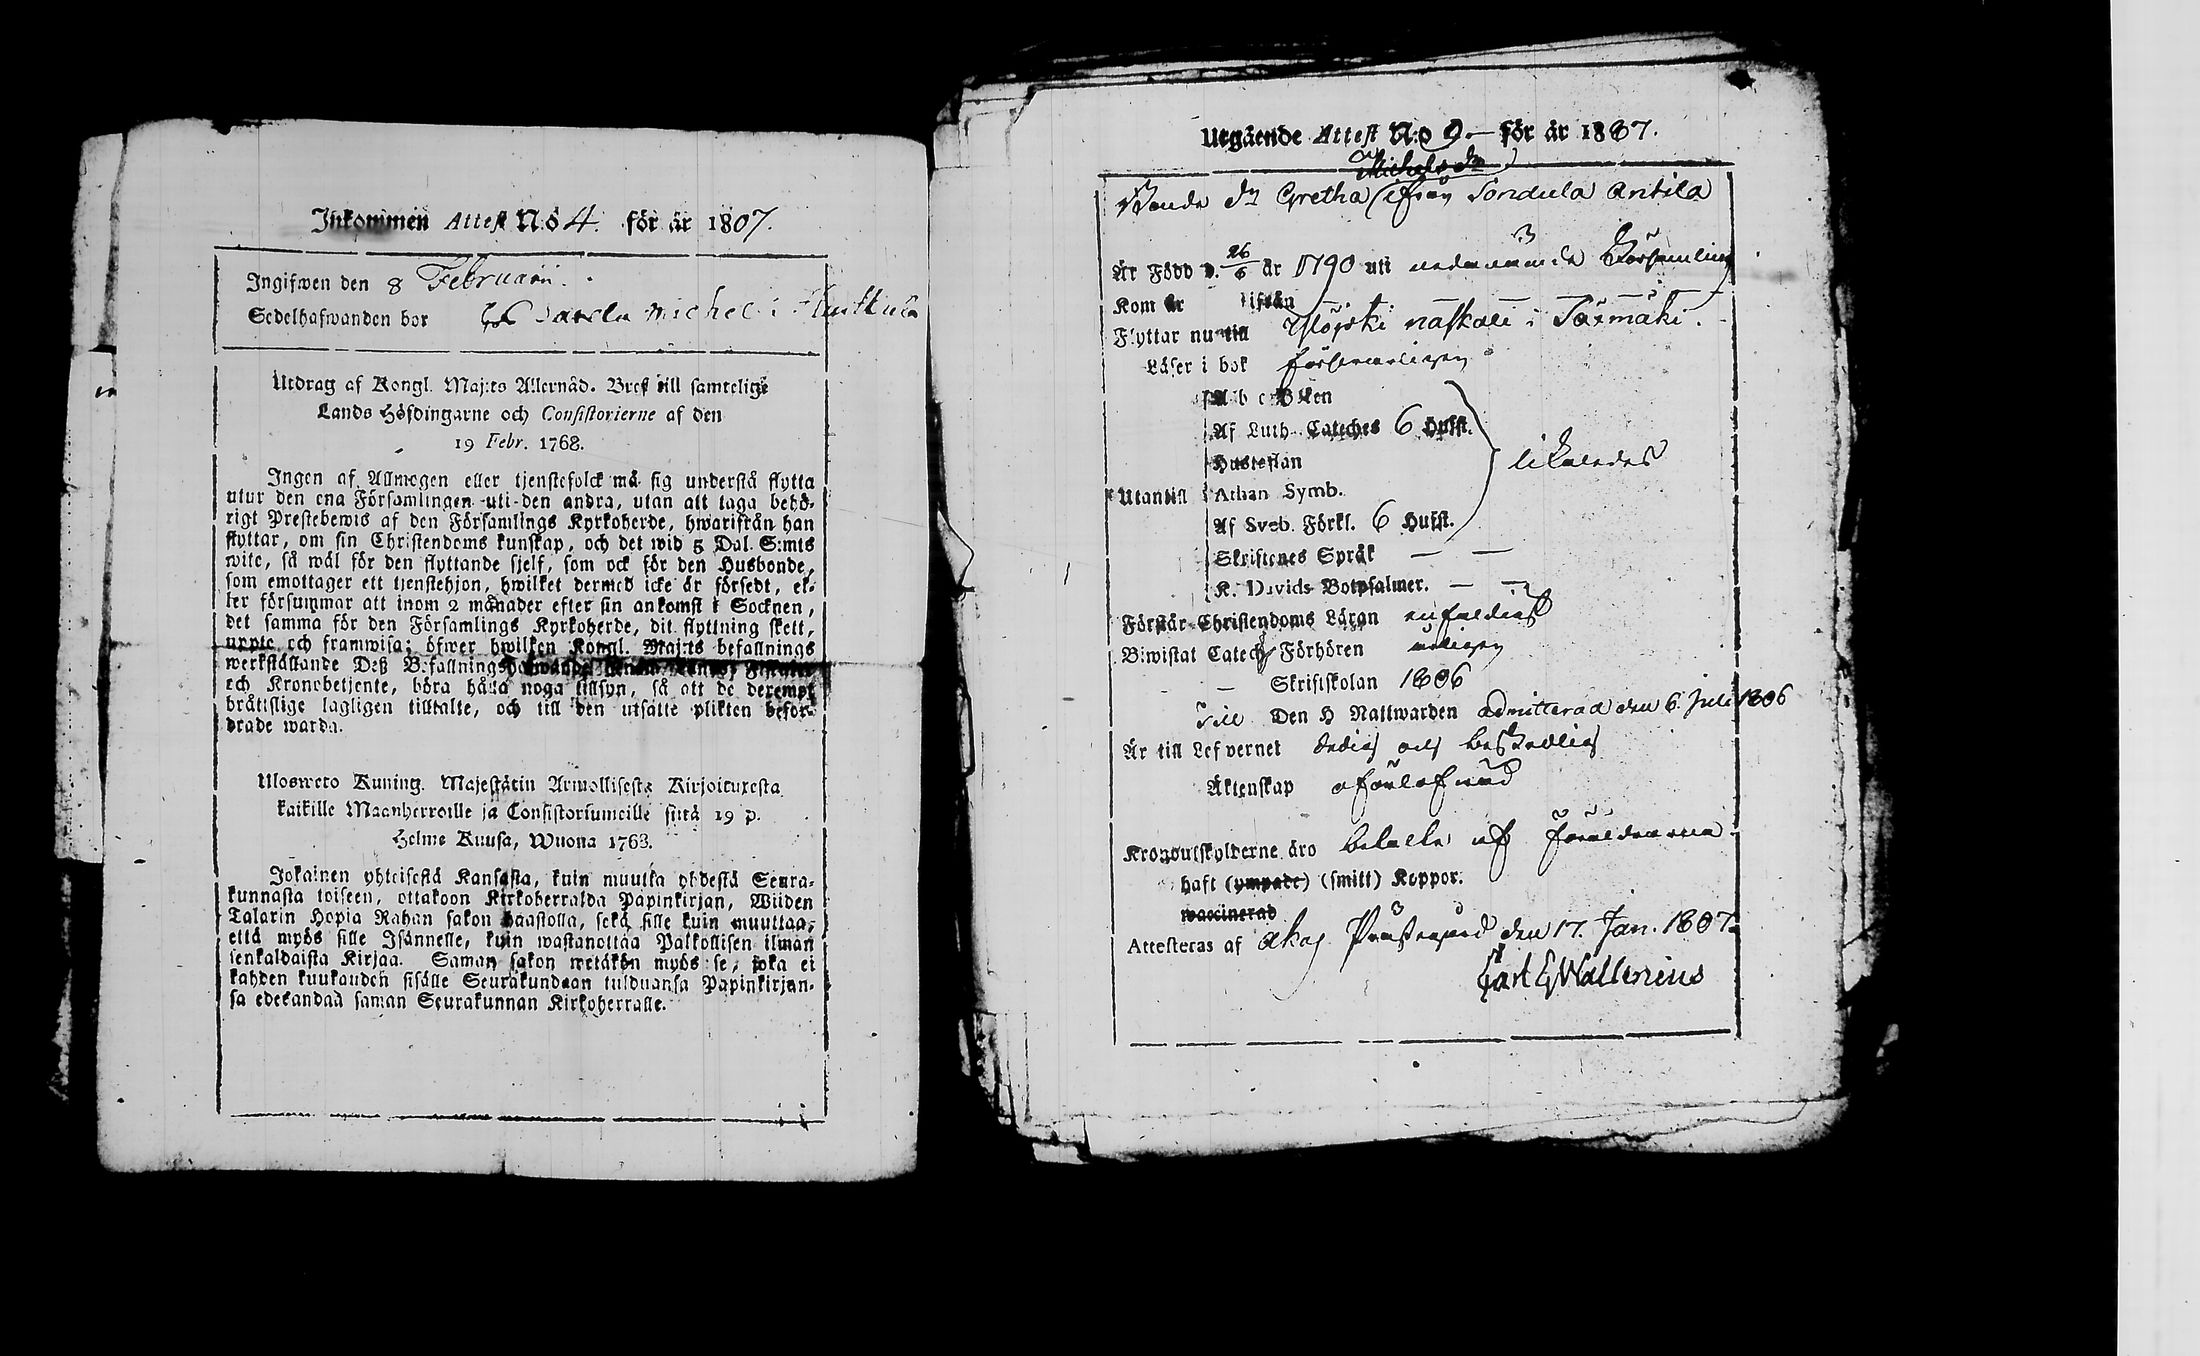 Inkommen Attest N:o 4. för år 1807.
Ingifwen den 8 Februarii.
Sedelhafwanden bor Michel i
Utdrag af Kongl. Maj:ts Allernåd. Bref till samtelige
Lands Höfdingarne och Consistorierne af den
19 Febr. 1768.
Ingen af Allmogen eller tjenstefolck må sig understå flytta
utur den ena Församlingen uti den andra, utan att taga behö-
rigt Prestebewis af den Församlings Kyrkoherde, hwarifrån han
flyttar, om sin Christendoms kunskap, och det wid 5 Dal. S:mts
wite, så wäl för den flyttande sjelf, som ock för den Husbonde,
som emottager ett tjenstehjon, hwilket dermed icke är försedt, el-
ler försummar att inom 2 månader efter sin ankomst i Socknen,
det samma för den Församlings Kyrkoherde, dit flyttning skett,
uppte och framwisa; öfwer hwilken Kongl. Maj:ts befallnings
werkställande Deß Befallningshafwande
och Kronobetjente, böra hålla noga tillsyn, så att de deremot
bråttslige lagligen tilltalte, och till den utsatte plikten beför-
drade warda.
Ulosweto Kuning. Majestätin Armollisesta Kirjoituxesta
kaikille Maanherroille ja Consistoriumeille siitä 19 p.
Helme Kuusa, Wuona 1768.
Jokainen yhteisestä Kansasta, kuin muutta yhdestä Seura-
kunnasta toiseen, ottakoon Kirkoherralda Papinkirjan, Wiiden
Talarin Hopia Rahan sakon haastolla, sekä sille kuin muuttaa,
että myös sille Isännelle, kuin wastanottaa Palkollisen ilman
senkaldaista Kirjaa. Saman sakon wetäkön myös se, joka ei
kahden kuukauden sisälle Seurakundaan tulduansa Papinkirjan-
sa edesandaa saman Seurakunnan Kirkoherralle.
Utgående Attest N:o 9. för år 1807.
Michelsdr
Bonde dr Gretha från Sondula Antila
Är Född d. 26/6 år 1790 uti nedannämde Församling
Kom år ifrån
Flyttar nu till i
Läser i bok försvarligen
A b c Boken
Af Luth. Cateches 6 Hufst.
Hustaflan
Utantill Athan Symb. likaledes
Af Sveb. Förkl. 6 Hufst.
Skriftenes Språk — —
K. Davids Botpsalmer. — —
Förstår Christendoms Läran enfaldigt
Biwistat Catech. Förhören årligen
— Skriftskolan 1806
Till Den H Nattwarden admitterad den 6 Juli 1806
Är till Lefvernet dedig och beskedlig
Äktenskap oförlofwad
Kronoutskylderne äro betalte af Föräldrarna
haft (ympade) (smitt) Koppor.
waccinerad
Attesteras af Akas Prästegård den 17. Jan. 1807.
Carl G Wallenius